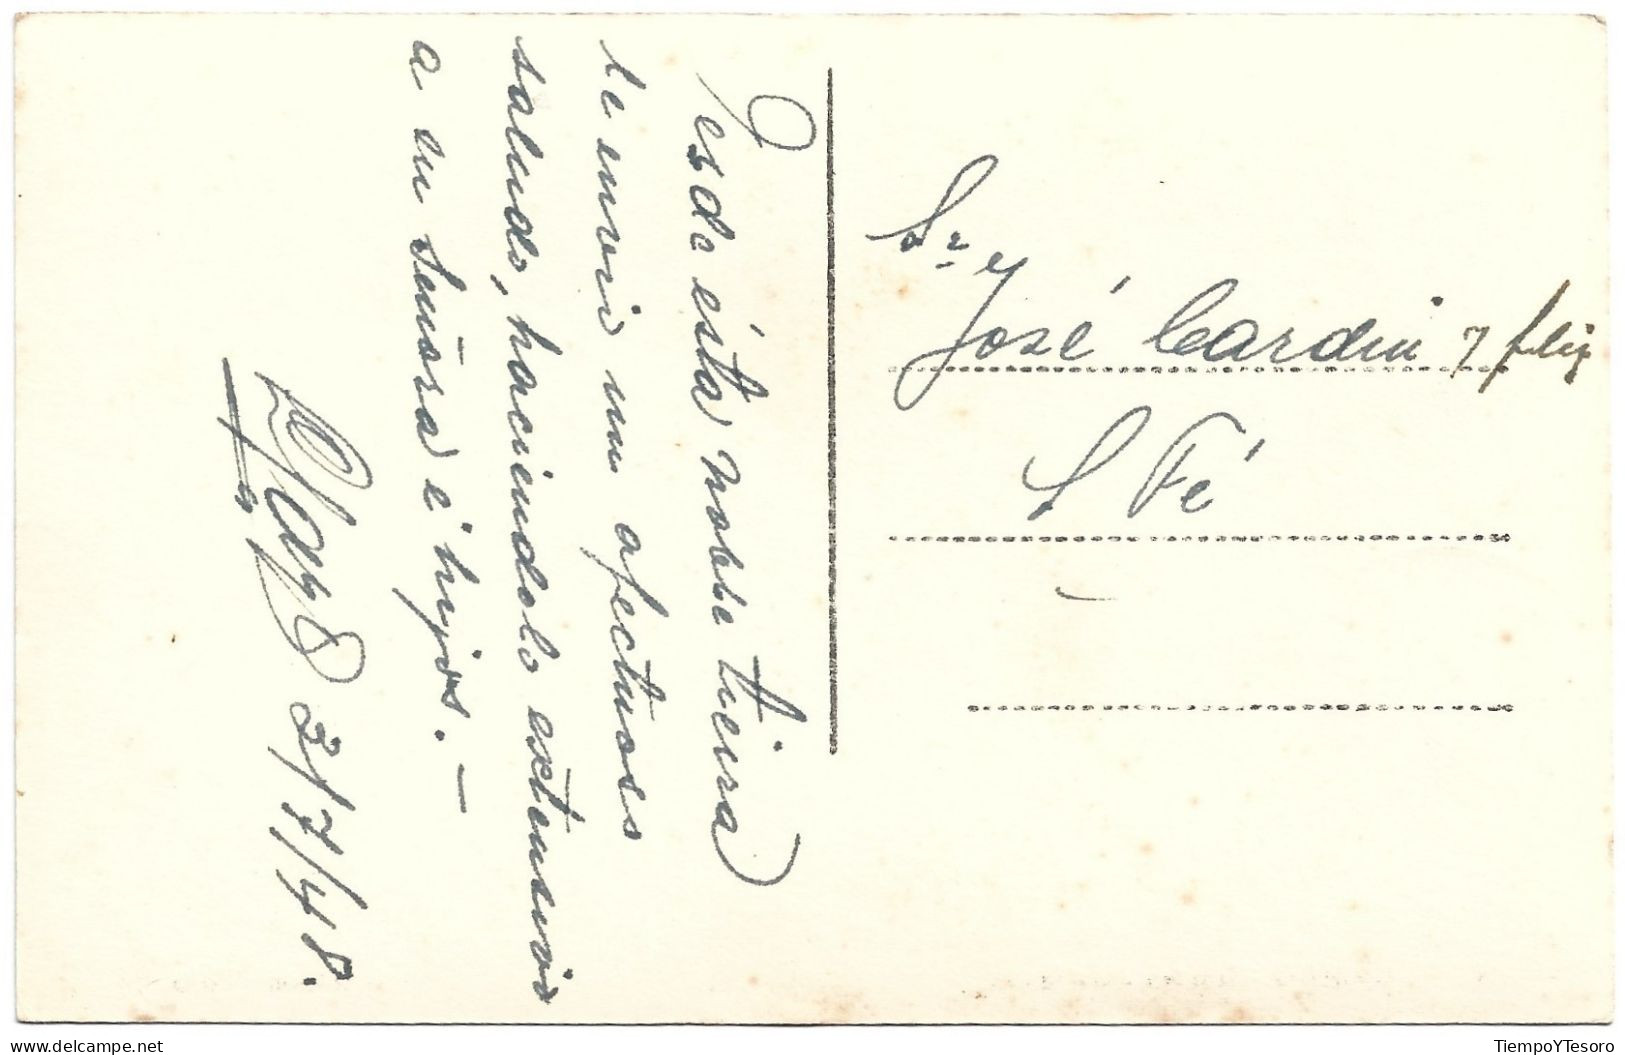 Desde ésta noble tierra
le envio un afectuoso
saludo, haciendolo extensivo
a su Señora é hijos. —
2/7/48.
Sr. José Cardin y flia
S Fé
www.delcampe.net
TiempoYTesoro